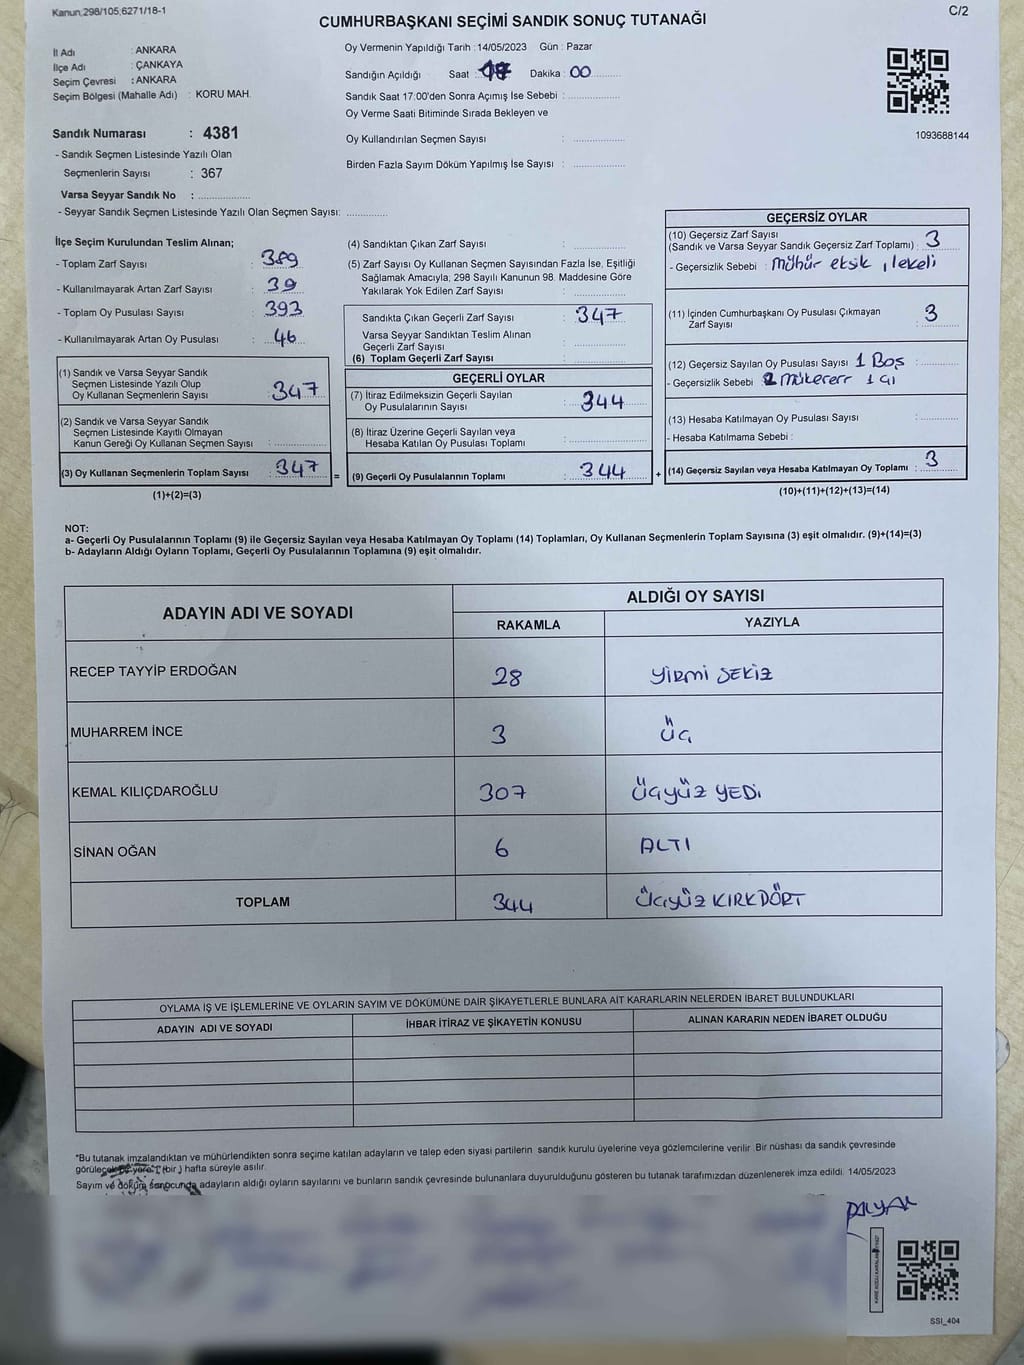 Kanun;298/105,6271/18-1
C/2
CUMHURBAŞKANI SEÇİMİ SANDIK SONUÇ TUTANAĞI
İl Adı : ANKARA
İlçe Adı : ÇANKAYA
Seçim Çevresi : ANKARA
Seçim Bölgesi (Mahalle Adı) : KORU MAH.
Oy Vermenin Yapıldığı Tarih : 14/05/2023 Gün : Pazar
Sandığın Açıldığı Saat : Dakika : 00
Sandık Saat 17:00'den Sonra Açımış İse Sebebi :
Oy Verme Saati Bitiminde Sırada Bekleyen ve
Oy Kullandırılan Seçmen Sayısı :
Birden Fazla Sayım Döküm Yapılmış İse Sayısı :
1093688144
Sandık Numarası : 4381
- Sandık Seçmen Listesinde Yazılı Olan
Seçmenlerin Sayısı : 367
Varsa Seyyar Sandık No :
- Seyyar Sandık Seçmen Listesinde Yazılı Olan Seçmen Sayısı:
İlçe Seçim Kurulundan Teslim Alınan;
- Toplam Zarf Sayısı : 389
- Kullanılmayarak Artan Zarf Sayısı : 39
- Toplam Oy Pusulası Sayısı : 393
- Kullanılmayarak Artan Oy Pusulası : 46
(1) Sandık ve Varsa Seyyar Sandık
Seçmen Listesinde Yazılı Olup
Oy Kullanan Seçmenlerin Sayısı : 347
(2) Sandık ve Varsa Seyyar Sandık
Seçmen Listesinde Kayıtlı Olmayan
Kanun Gereği Oy Kullanan Seçmen Sayısı :
(3) Oy Kullanan Seçmenlerin Toplam Sayısı : 347
(1)+(2)=(3)
=
(4) Sandıktan Çıkan Zarf Sayısı :
(5) Zarf Sayısı Oy Kullanan Seçmen Sayısından Fazla İse, Eşitliği
Sağlamak Amacıyla; 298 Sayılı Kanunun 98. Maddesine Göre
Yakılarak Yok Edilen Zarf Sayısı :
Sandıkta Çıkan Geçerli Zarf Sayısı : 347
Varsa Seyyar Sandıktan Teslim Alınan
Geçerli Zarf Sayısı :
(6) Toplam Geçerli Zarf Sayısı :
GEÇERLİ OYLAR
(7) İtiraz Edilmeksizin Geçerli Sayılan
Oy Pusulalarının Sayısı : 344
(8) İtiraz Üzerine Geçerli Sayılan veya
Hesaba Katılan Oy Pusulası Toplamı :
(9) Geçerli Oy Pusulalarının Toplamı : 344
+
GEÇERSİZ OYLAR
(10) Geçersiz Zarf Sayısı
(Sandık ve Varsa Seyyar Sandık Geçersiz Zarf Toplamı) : 3
- Geçersizlik Sebebi : mühür eksik, lekeli
(11) İçinden Cumhurbaşkanı Oy Pusulası Çıkmayan
Zarf Sayısı : 3
(12) Geçersiz Sayılan Oy Pusulası Sayısı 1 Boş
- Geçersizlik Sebebi mükererr 1
(13) Hesaba Katılmayan Oy Pusulası Sayısı :
- Hesaba Katılmama Sebebi :
(14) Geçersiz Sayılan veya Hesaba Katılmayan Oy Toplamı : 3
(10)+(11)+(12)+(13)=(14)
NOT:
a- Geçerli Oy Pusulalarının Toplamı (9) ile Geçersiz Sayılan veya Hesaba Katılmayan Oy Toplamı (14) Toplamları, Oy Kullanan Seçmenlerin Toplam Sayısına (3) eşit olmalıdır. (9)+(14)=(3)
b- Adayların Aldığı Oyların Toplamı, Geçerli Oy Pusulalarının Toplamına (9) eşit olmalıdır.
ADAYIN ADI VE SOYADI
ALDIĞI OY SAYISI
RAKAMLA YAZIYLA
RECEP TAYYİP ERDOĞAN 28 YİRMİ SEKİZ
MUHARREM İNCE 3 ÜÇ
KEMAL KILIÇDAROĞLU 307 ÜÇYÜZ YEDİ
SİNAN OĞAN 6 ALTI
TOPLAM 344 ÜÇYÜZ KIRKDÖRT
OYLAMA İŞ VE İŞLEMLERİNE VE OYLARIN SAYIM VE DÖKÜMÜNE DAİR ŞİKAYETLERLE BUNLARA AİT KARARLARIN NELERDEN İBARET BULUNDUKLARI
ADAYIN ADI VE SOYADI İHBAR İTİRAZ VE ŞİKAYETİN KONUSU ALINAN KARARIN NEDEN İBARET OLDUĞU
*Bu tutanak imzalandıktan ve mühürlendikten sonra seçime katılan adayların ve talep eden siyasi partilerin sandık kurulu üyelerine veya gözlemcilerine verilir. Bir nüshası da sandık çevresinde
görülecek bir yere 1 (bir) hafta süreyle asılır.
Sayım ve döküm sonucunda adayların aldığı oyların sayılarını ve bunların sandık çevresinde bulunanlara duyurulduğunu gösteren bu tutanak tarafımızdan düzenlenerek imza edildi. 14/05/2023
SSI_404